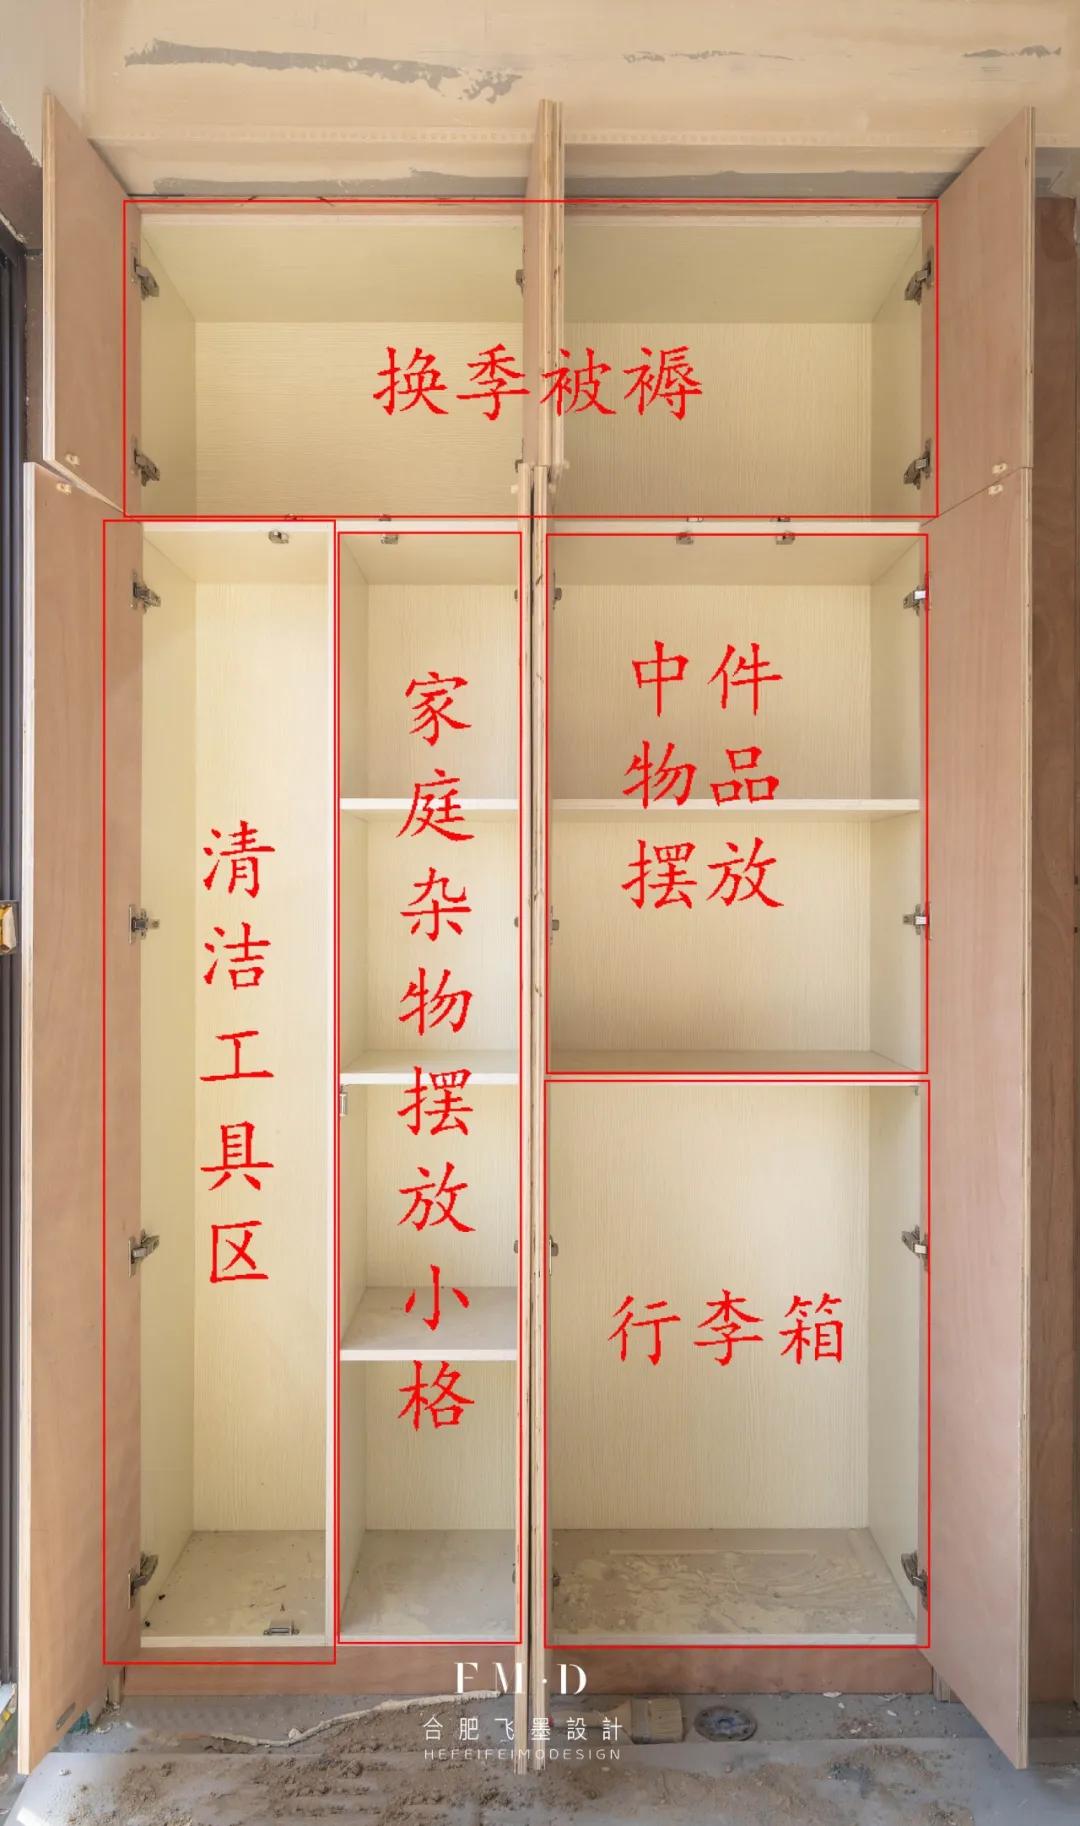 换季被褥
清洁工具区
家庭杂物摆放小格
中件
物品
摆放
行李箱
FM·D
合肥飞墨設計
HEFEIFEIMODESIGN